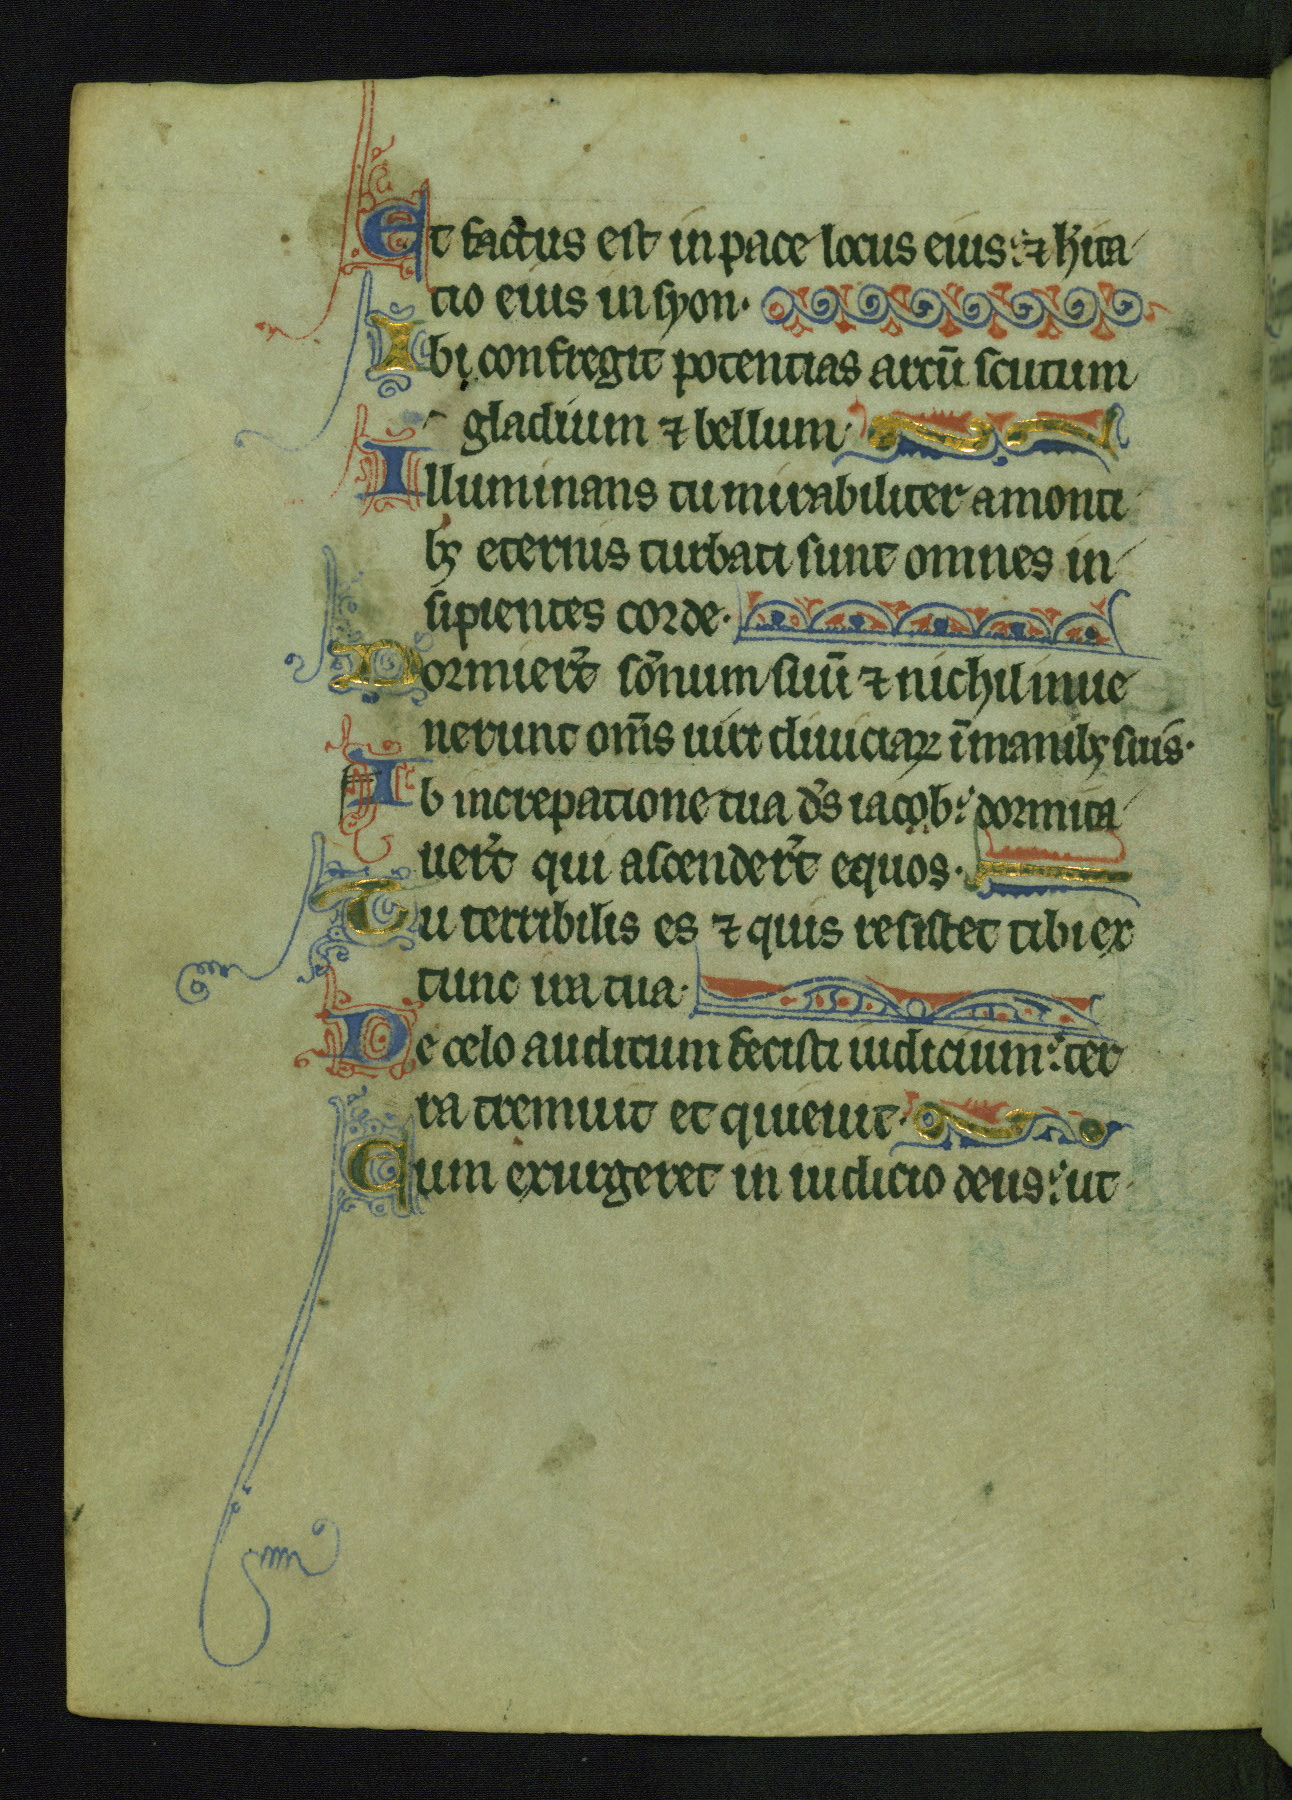 Et factus est in pace locus eius: ⁊ hita
tio eius in syon.
Ibi confregit potentias arcū scutum
gladium ⁊ bellum.
Illuminans tu mirabiliter a monti
bꝫ eternis turbati sunt omnes in
sipientes corde.
Dormier̄t sōnum suū ⁊ nichil inue
nerunt om̄s uiri diuitiaꝝ ī manibꝫ suis.
Ab increpatione tua ds̄ iacob: dormita
uer̄t qui ascender̄t equos.
Tu terribilis es ⁊ quis resistet tibi ex
tunc ira tua.
De celo auditum fecisti iudicium: ter
ra tremuit et quieuit.
Cum exurgeret in iudicio deus: ut